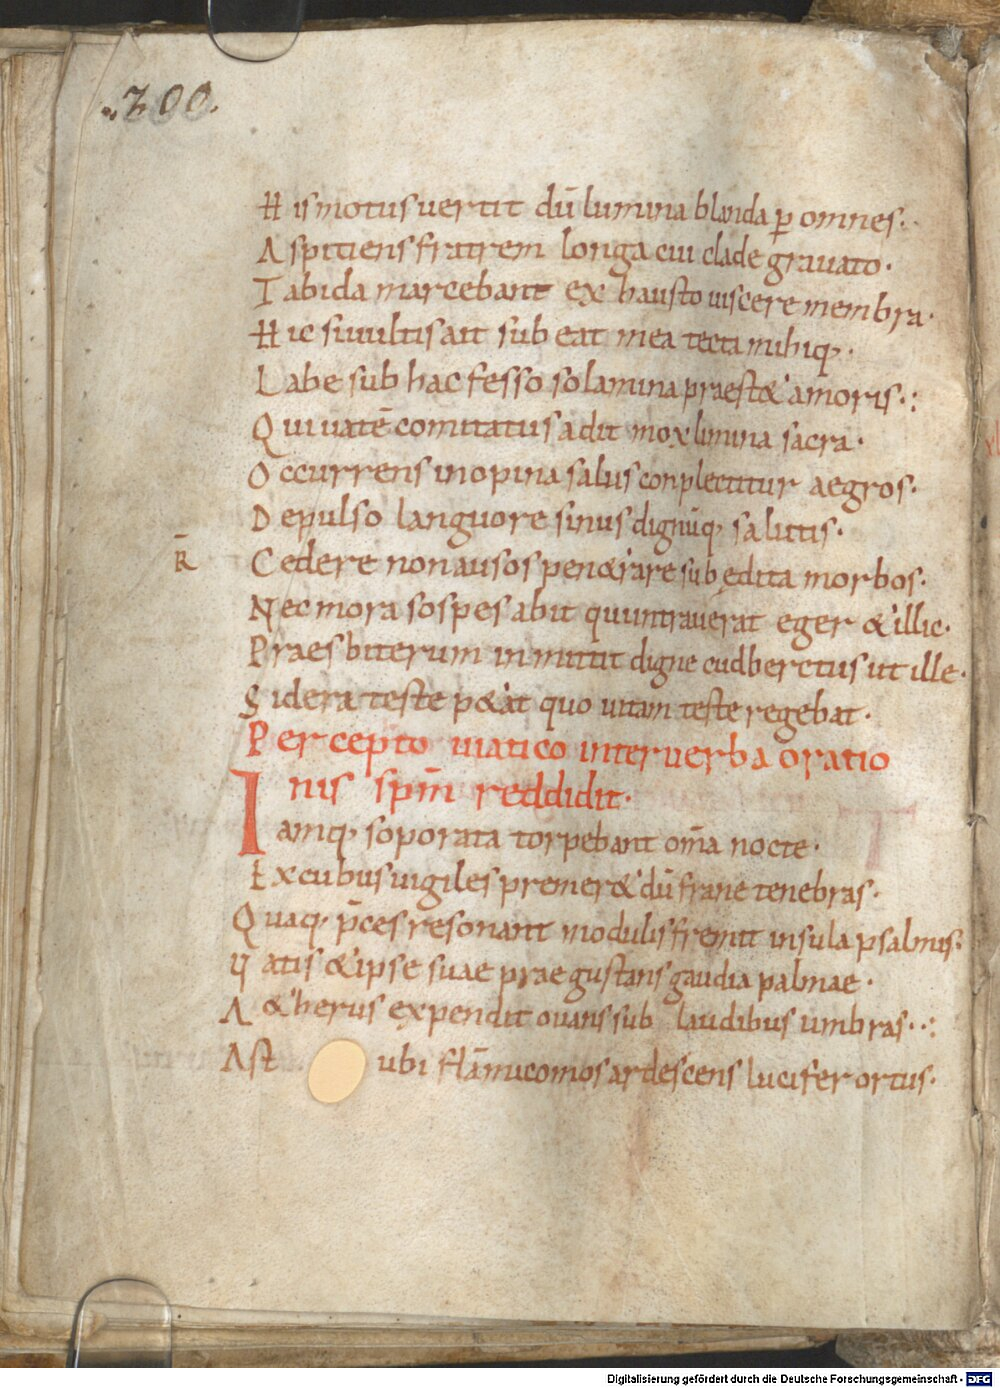 .200.
His motus uertit dū lumina blanda ꝑ omnes.
Aspitiens fratrem longa cui clade grauato.
Tabida marcebant ex hausto uiscere membra.
Hic si uultis ait sub eat mea tecta mihiq;.
Labe sub hac fesso solamina praest& amoris.:
Qui uatē comitatus adit mox limina sacra.
Occurrens inopina salus conplectitur aegros.
Depulso languore sinus dignūq; salutis.
R̄ Cedere non ausos pen&rare sub ędita morbos.
Nec mora sospes abit qui intrauerat eger & illic.
Praesbiterum inmittit digne cudberctus ut ille.
Sidera teste p&at quo uitam teste regebat.
Percepto uiatico inter uerba oratio
nis spm̄ reddidit.
Iamq; soporata torpebant om̄a nocte.
Excubus uigiles premer& dū frane tenebras.
Quaq; p̄ces resonant modulis fremit insula psalmis:
Uatis & ipse suae prae gustans gaudia palmae.
A&herus expendit ouans sub laudibus umbras..:
Ast ubi flāmicomos ardescens lucifer ortus.
Digitalisierung gefördert durch die Deutsche Forschungsgemeinschaft - DFG